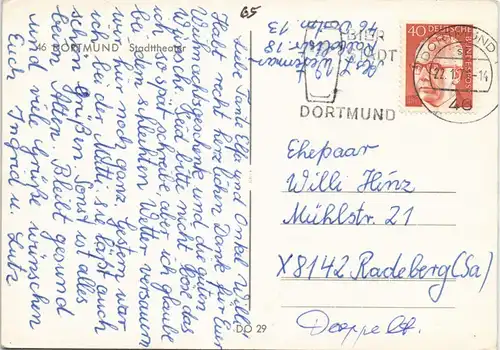 65
46 DORTMUND Stadttheater
Liebe Tante Elfe und Onkel Willi!
Habt recht herzlichen Dank für Euer
Weihnachtsgeschenk und die guten
Wünsche. Seid bitte nicht böse das
ich so spät schreibe aber ich glaube
den schlechten Wetter versauern
wir hier noch ganz. Gestern war
ich bei der Mutti, sie läßt auch
schön grüßen. Sonst ist alles
beim Alten. Bleibt gesund
und viele Grüße wünschen
Euch Ingrid u. Lutz
DO 29
Abs. L.
46 Dortm. 13
BIER
STADT
DORTMUND
DORTMUND
22.1.72-14
46
40
DEUTSCHE BUNDESPOST
Ehepaar
Willi Hinz
Mühlstr. 21
X8142 Radeberg (Sa)